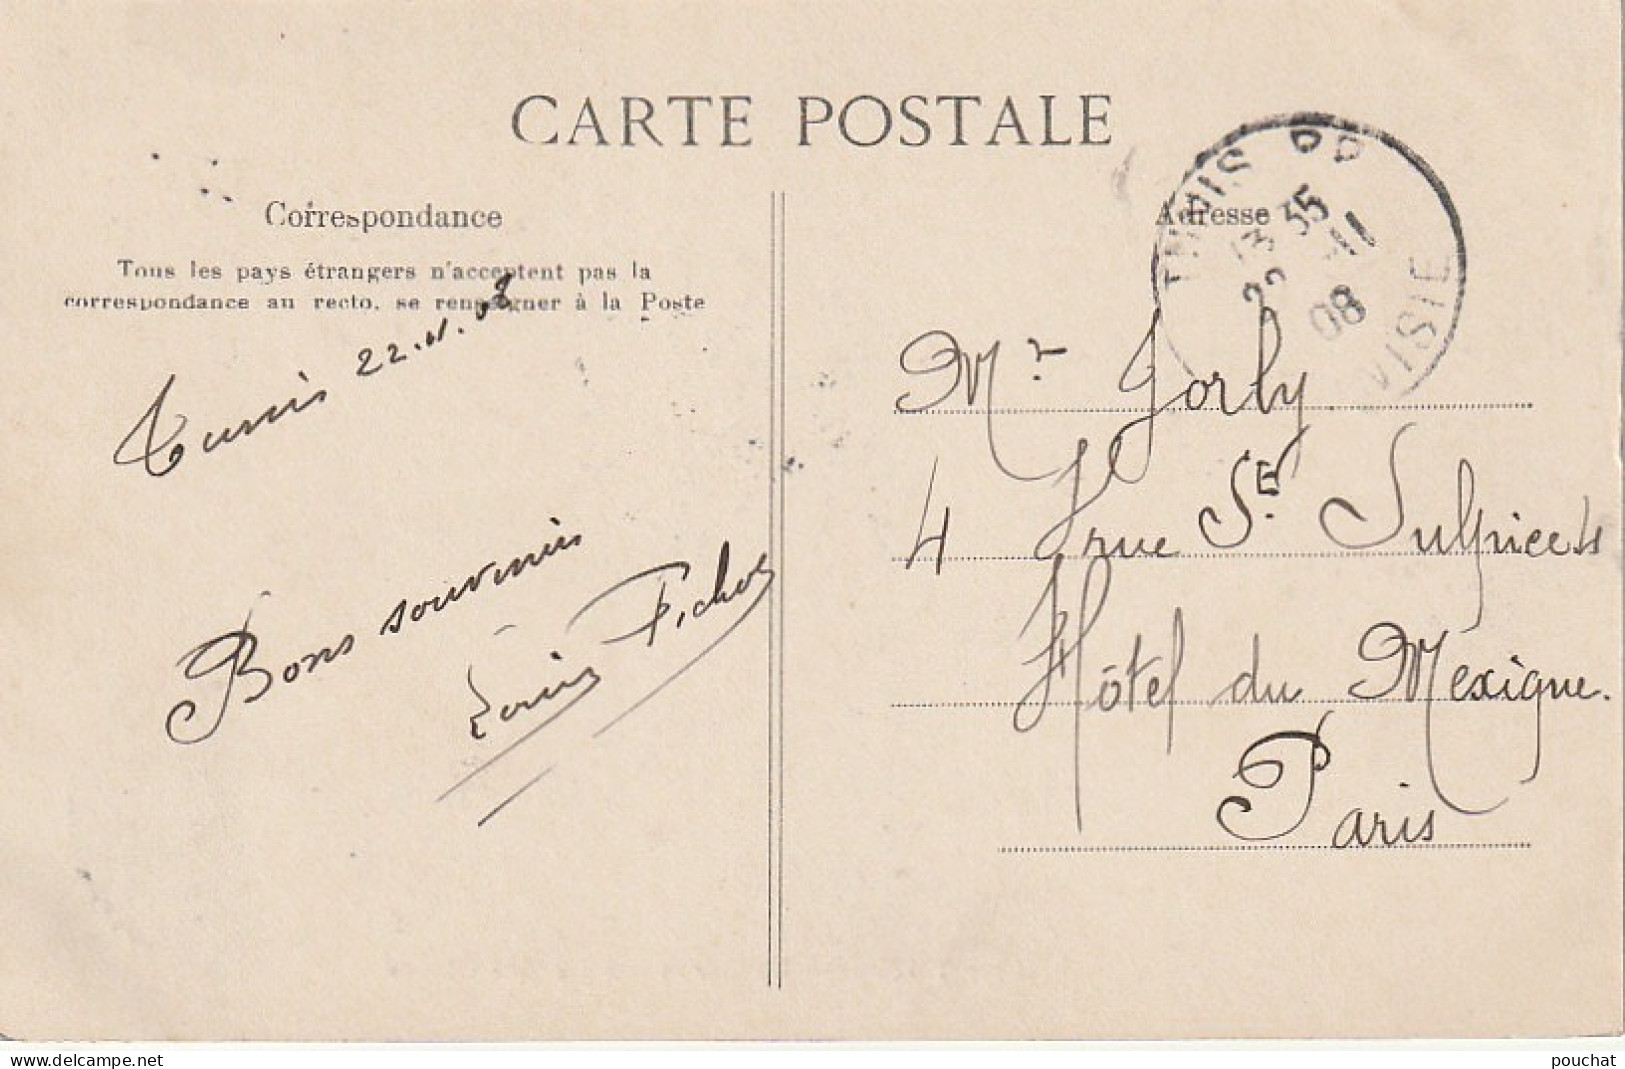 CARTE POSTALE
Correspondance
Tous les pays étrangers n'acceptent pas la
correspondance au recto, se renseigner à la Poste
Tunis 22.11.08
Bons souvenirs
Louis Pichot
Adresse
TUNIS RP
13 55
22 -11
08
Mr Jorly
4 rue St Sulpice 4
Hôtel du Mexique.
Paris
www.delcampe.net
pouchat